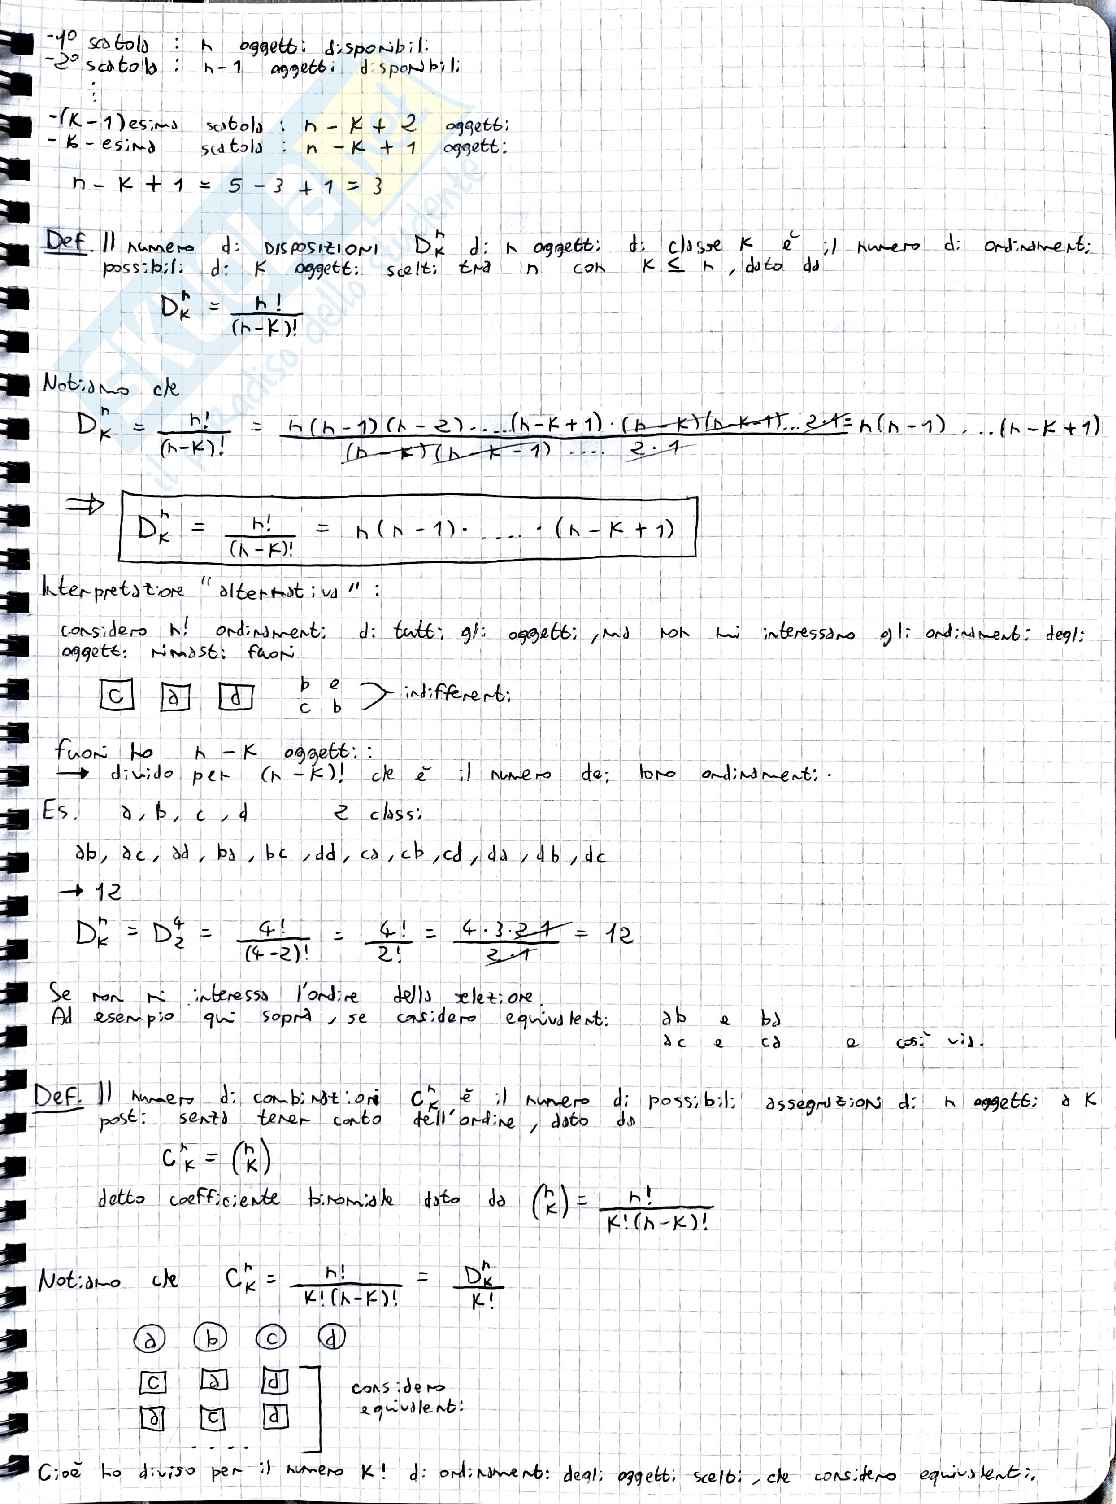 -1° scatola : n oggetti disponibili
-2° scatola : n-1 oggetti disponibili
⋮
-(K-1)esima scatola : n - K + 2 oggetti
-K-esima scatola : n - K + 1 oggetti
n - K + 1 = 5 - 3 + 1 = 3
Def. Il numero di DISPOSIZIONI D_K^n di n oggetti di classe K è il numero di ordinamenti
possibili di K oggetti scelti tra n con K ≤ n, dato da
D_K^n = n!/(n-K)!
Notiamo che
D_K^n = n!/(n-K)! = n(n-1)(n-2)....(n-K+1)·(n-K)(n-K-1)...2·1/(n-K)(n-K-1)....2·1 = n(n-1)...(n-K+1)
⇒ D_K^n = n!/(n-K)! = n(n-1)·....·(n-K+1)
Interpretazione "alternativa" :
considero n! ordinamenti di tutti gli oggetti, ma non mi interessano gli ordinamenti degli
oggetti rimasti fuori
c a d b e
c b > indifferenti
fuori ho n-K oggetti :
→ divido per (n-K)! che è il numero dei loro ordinamenti.
Es. a, b, c, d 2 classi
ab, ac, ad, ba, bc, dd, ca, cb, cd, da, db, dc
→ 12
D_K^n = D_2^4 = 4!/(4-2)! = 4!/2! = 4·3·2·1/2·1 = 12
Se non mi interessa l'ordine della selezione.
Ad esempio qui sopra, se cosidero equivalenti ab e ba
ac e ca e così via.
Def. Il numero di combinazioni C_K^n è il numero di possibili assegnazioni di n oggetti a K
posti senza tener conto dell'ordine, dato da
C_K^n = (n K)
detto coefficiente binomiale dato da (n K) = n!/K!(n-K)!
Notiamo che C_K^n = n!/K!(n-K)! = D_K^n/K!
a b c d
c a d considero
a c d equivalenti
....
Cioè ho diviso per il numero K! di ordinamenti degli oggetti scelti, che considero equivalenti.